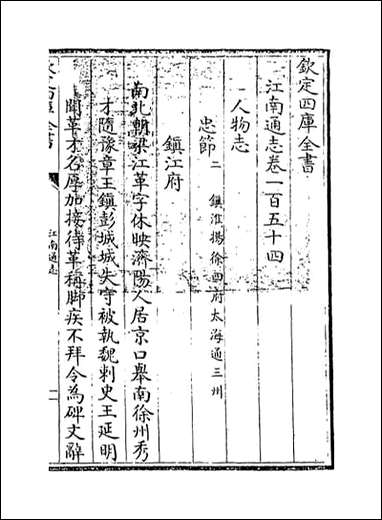 欽定四庫全書
江南通志卷一百五十四
人物志
忠節二 鎮淮揚徐四府太海通三州
鎮江府
南北朝梁江革字休映濟陽人居京口舉南徐州秀
才隨豫章王鎮彭城城失守被執魏刺史王延明
聞革才名厚加接待革稱脚疾不拜令為碑文辭
江南通志